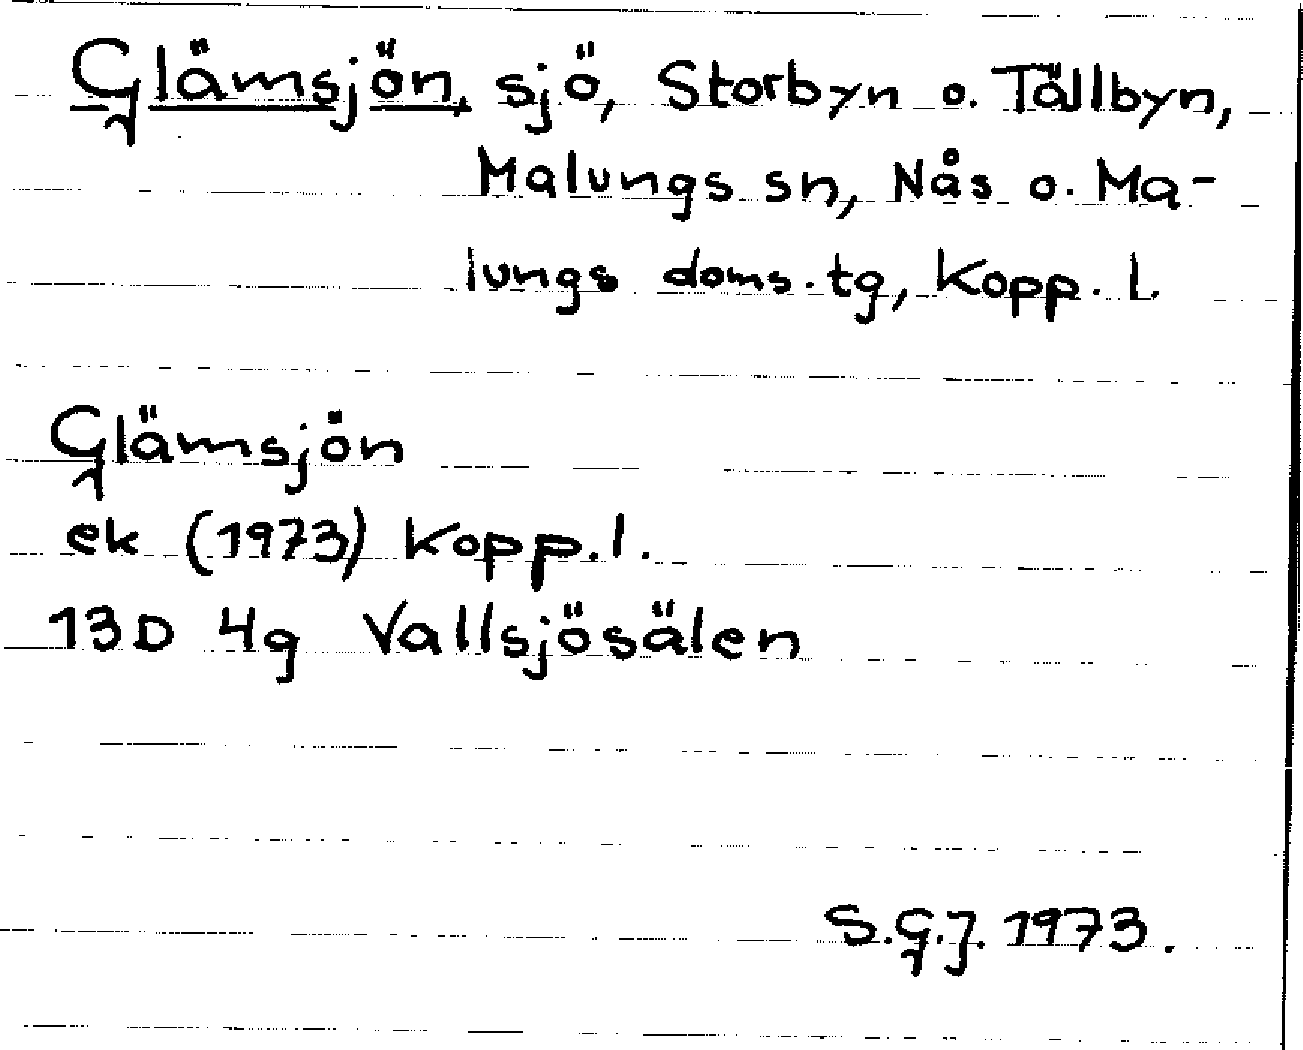 Glämsjön, sjö, Storbyn o. Tällbyn,
Malungs sn, Nås o. Ma-
lungs doms. tg, Kopp. l.
Glämsjön
ek (1973) Kopp. l.
13D 4g Vallsjösälen
S.G.J. 1973.